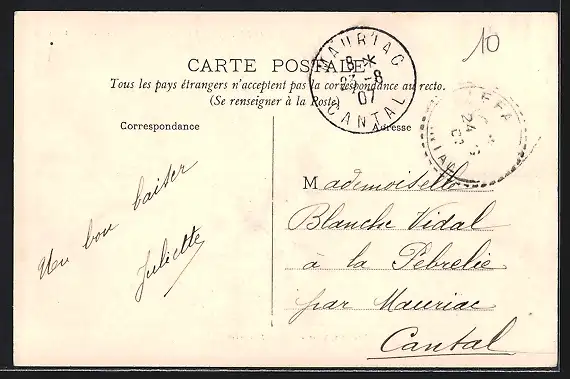 10
CARTE POSTALE
Tous les pays étrangers n'acceptent pas la correspondance au recto.
(Se renseigner à la Poste)
MAURIAC
8 *
23 -8
07
CANTAL
24
Correspondance
Adresse
Un bon baiser
Juliette
Mademoiselle
Blanche Vidal
à la Pébrelie
par Mauriac
Cantal